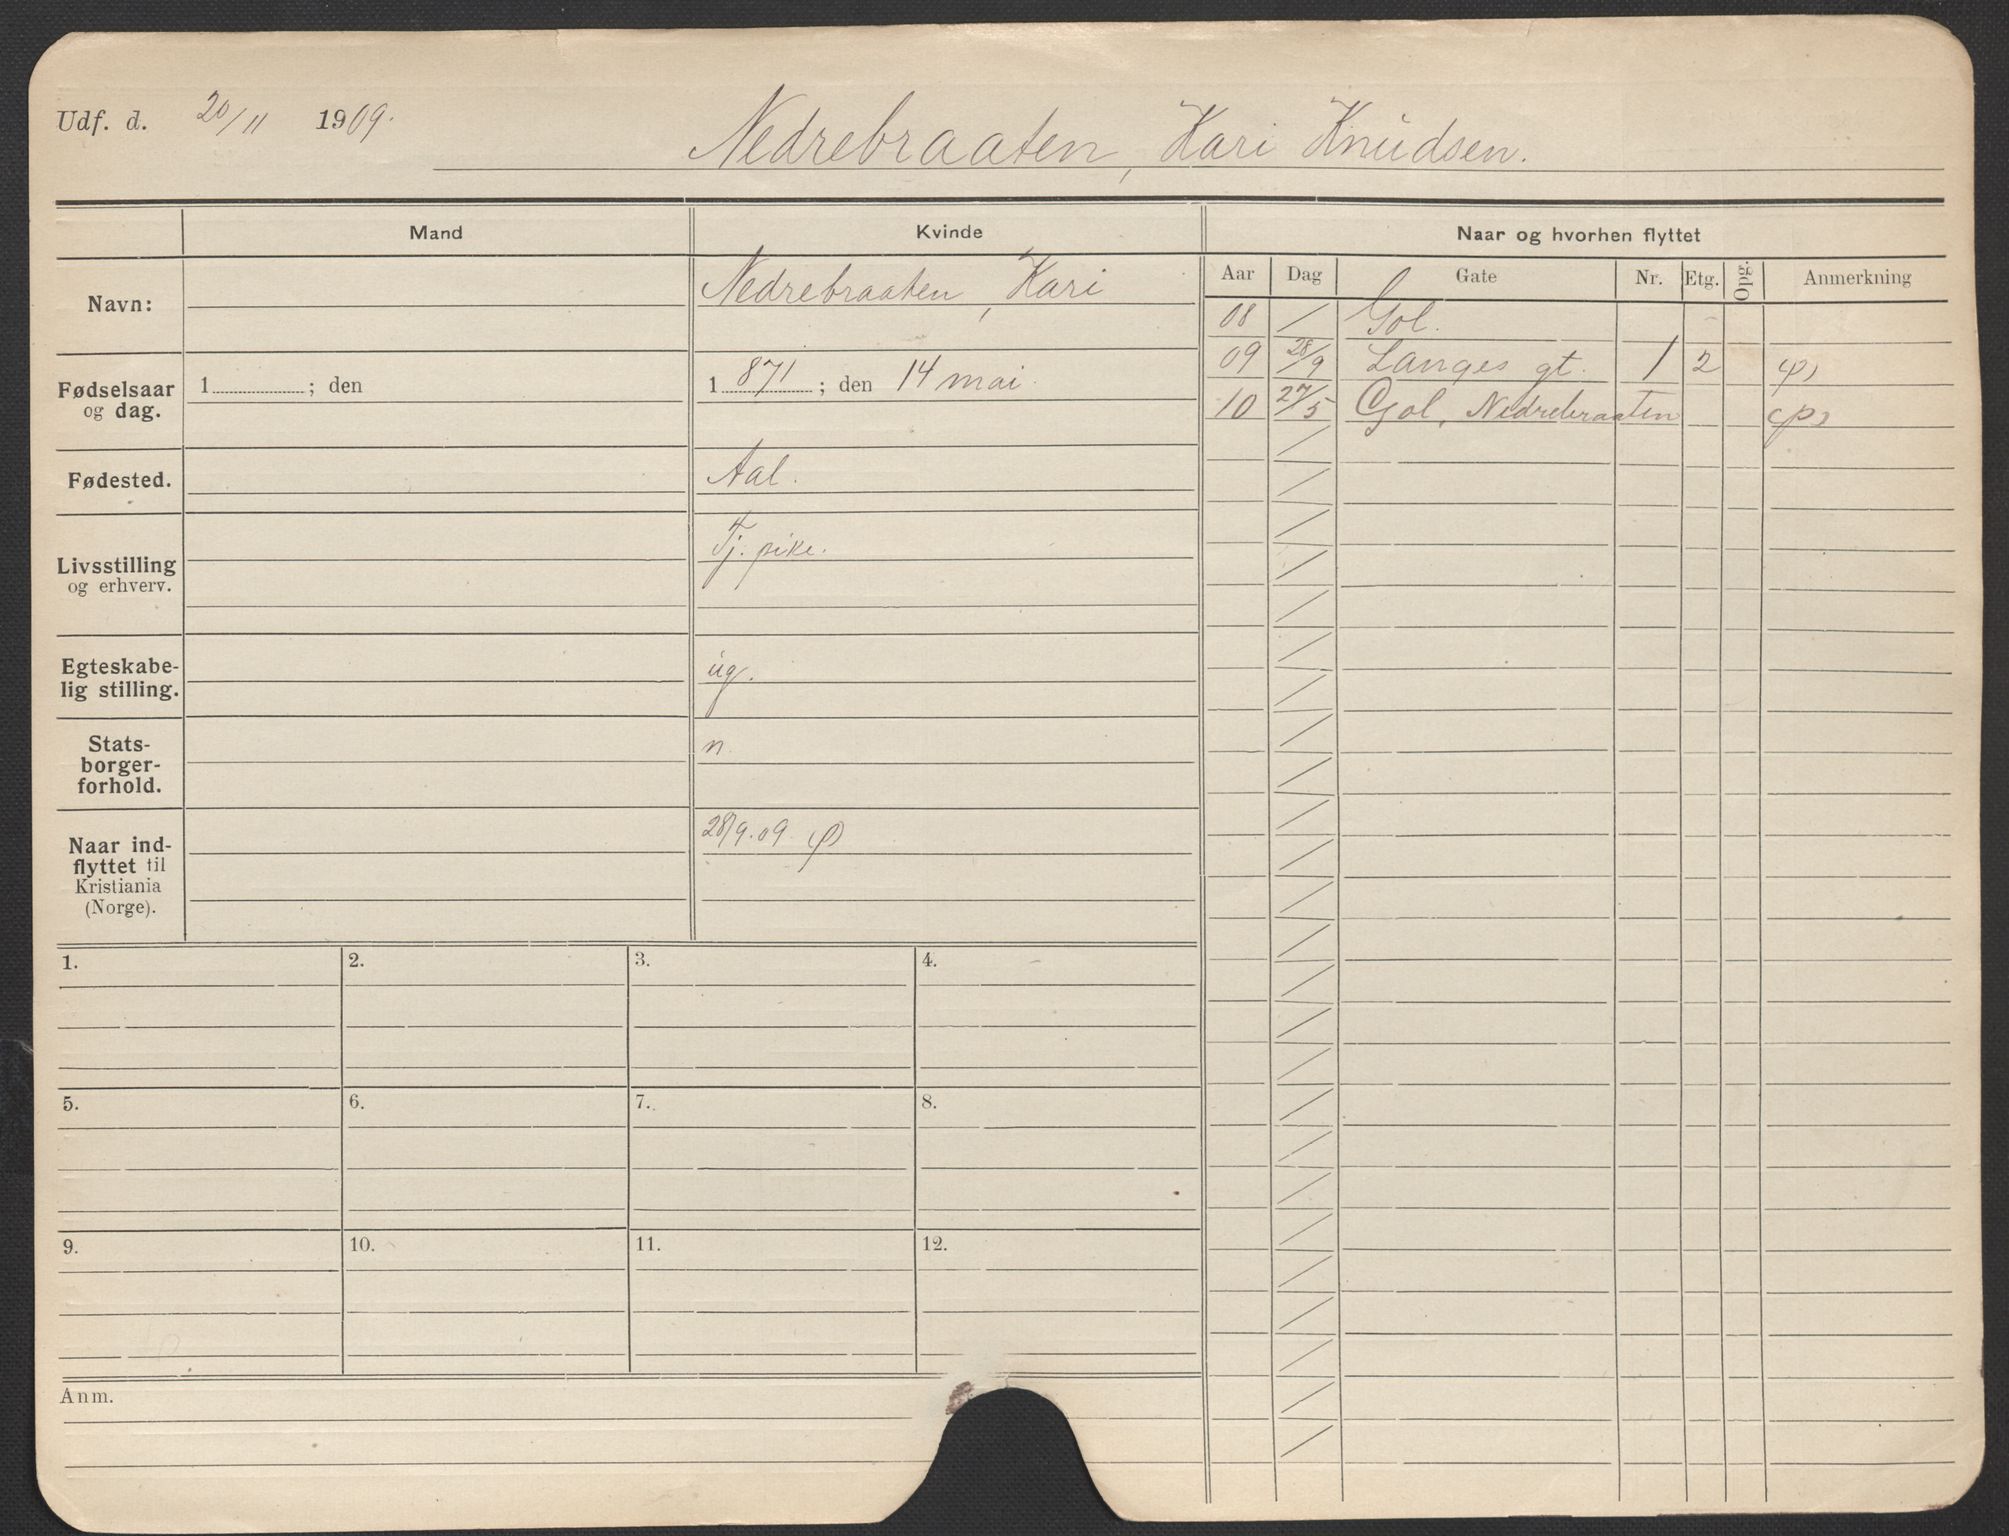 Udf. d. 20/11 1909.
Nedrebraaten, Kari Knudsen.
Mand Kvinde Naar og hvorhen flyttet
Aar Dag Gate Nr. Etg. Opg. Anmerkning
Navn: Nedrebraaten, Kari
08 / Gol.
09 28/9 Langes gt. 1 2 (p)
10 27/5 Gol, Nedrebraaten (p)
Fødselsaar 1 ; den 1 871 ; den 14 mai.
og dag.
Fødested. Aal.
Livsstilling Tj. pike.
og erhverv.
Egteskabe- ug.
lig stilling.
Stats- n.
borger-
forhold.
Naar ind- 28/9.09. (p)
flyttet til
Kristiania
(Norge).
1. 2. 3. 4.
5. 6. 7. 8.
9. 10. 11. 12.
Anm.